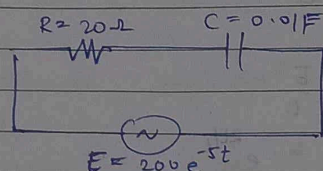 R = 20 Ω C = 0.01 F
~
E = 200 e^-5t